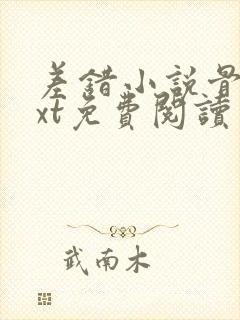 差錯小說骨
xt免費閱讀
武南木